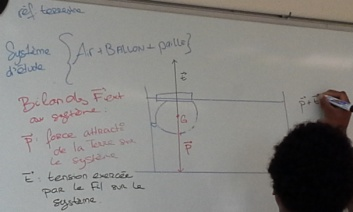 réf terrestre
Système d'étude { Air + BALLON + paille }
Bilan des F ext
au système:
P: force attractive
de la Terre sur
le système
T: tension exercée
par le fil sur le
système
G
P